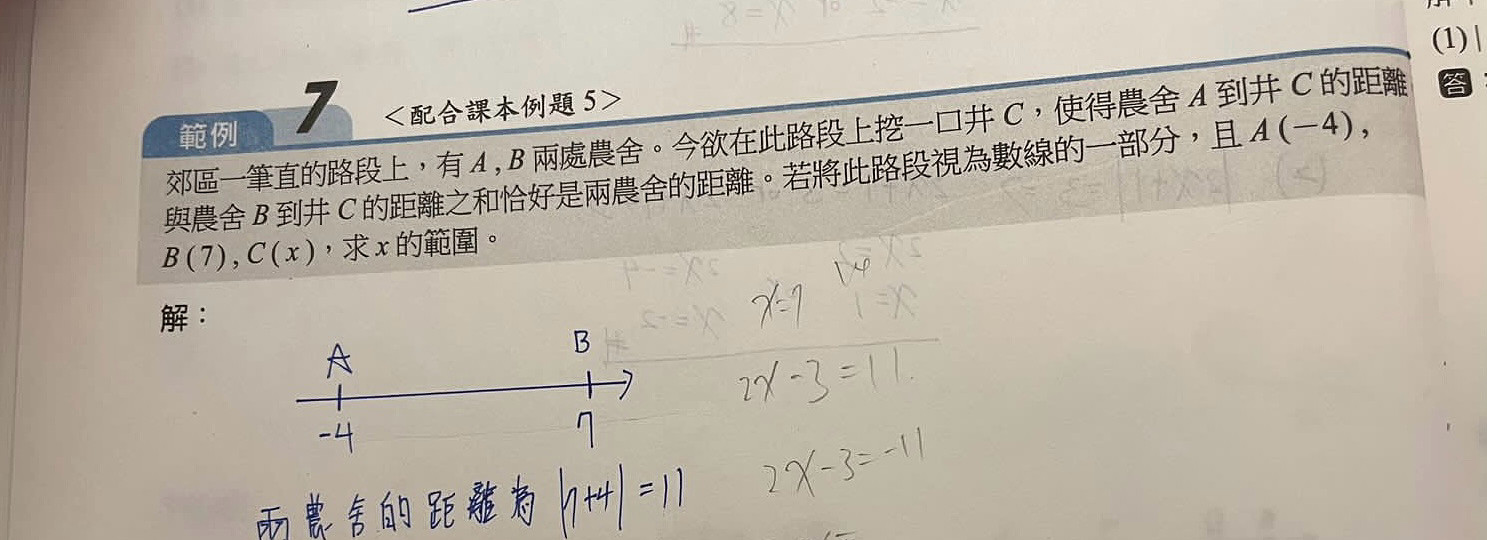 範例 7 <配合課本例題 5>
郊區一筆直的路段上,有 A , B 兩處農舍。今欲在此路段上挖一口井 C,使得農舍 A 到井 C 的距離
與農舍 B 到井 C 的距離之和恰好是兩農舍的距離。若將此路段視為數線的一部分,且 A (−4),
B (7) , C ( x ),求 x 的範圍。
解:
A B
-4 7
兩農舍的距離為 |7+4| = 11
x=7
2x-3=11.
2x-3=-11
(1) |
答